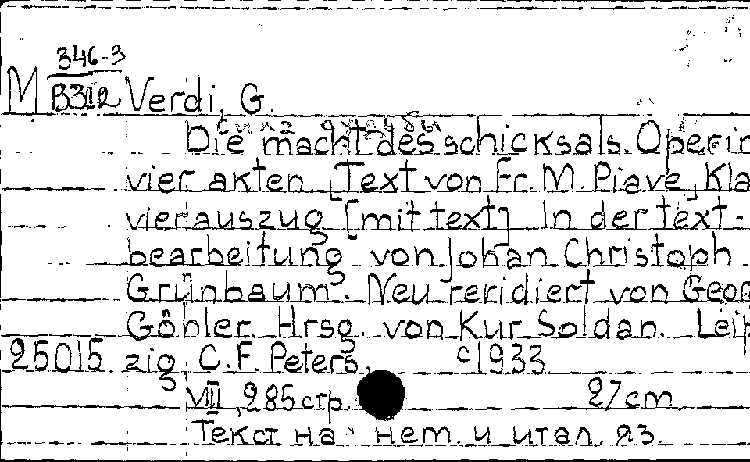 346-3
M B312 Verdi, G.
Die macht des schicksals. Oper in
vier akten. [Text von Fr. M. Piave] Kla
vierauszug [mit text] In der text-
bearbeitung von Johan Christoph
Grünbaum. Neu reridiert von Geor
Göhler. Hrsg. von Kur Soldan. Leip
25015 zig, C.F. Peters, c1933
VIII, 285 стр. 27 cm
Текст на нем. и итал. яз.